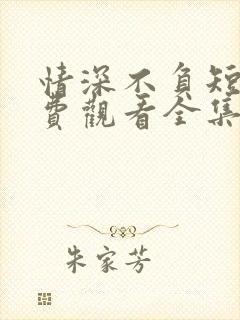 情深不負短
費觀看全集
朱家芳